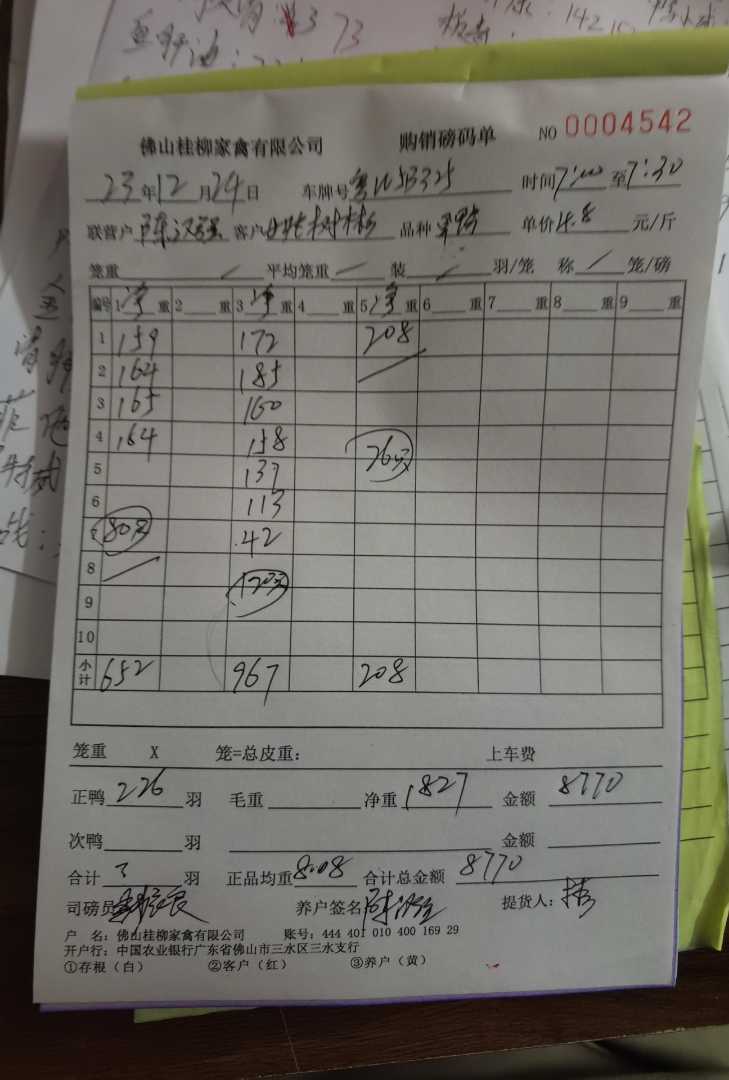 373
142
佛山桂柳家禽有限公司 购销磅码单 NO 0004542
23年12月24日 车牌号 粤W5B325 时间7:00至7:30
联营户 陈汉强 客户 树林 品种 单价4.8 元/斤
笼重 / 平均笼重 / 装 / 羽/笼 称 / 笼/磅
编号 1净重 2 重 3净重 4 重 5净重 6 重 7 重 8 重 9 重
1 159 172 208
2 164 185
3 165 160
4 164 158 26只
5 137
6 113
80只 42
8 120只
9
10
小计 652 967 208
笼重 X 笼=总皮重: 上车费
正鸭 226 羽 毛重 净重 1827 金额 8770
次鸭 羽 金额
合计 羽 正品均重 8.08 合计总金额 8770
司磅员 养户签名 陈汉强 提货人:
户 名:佛山桂柳家禽有限公司 账号:444 401 010 400 169 29
开户行:中国农业银行广东省佛山市三水区三水支行
①存根(白) ②客户(红) ③养户(黄)